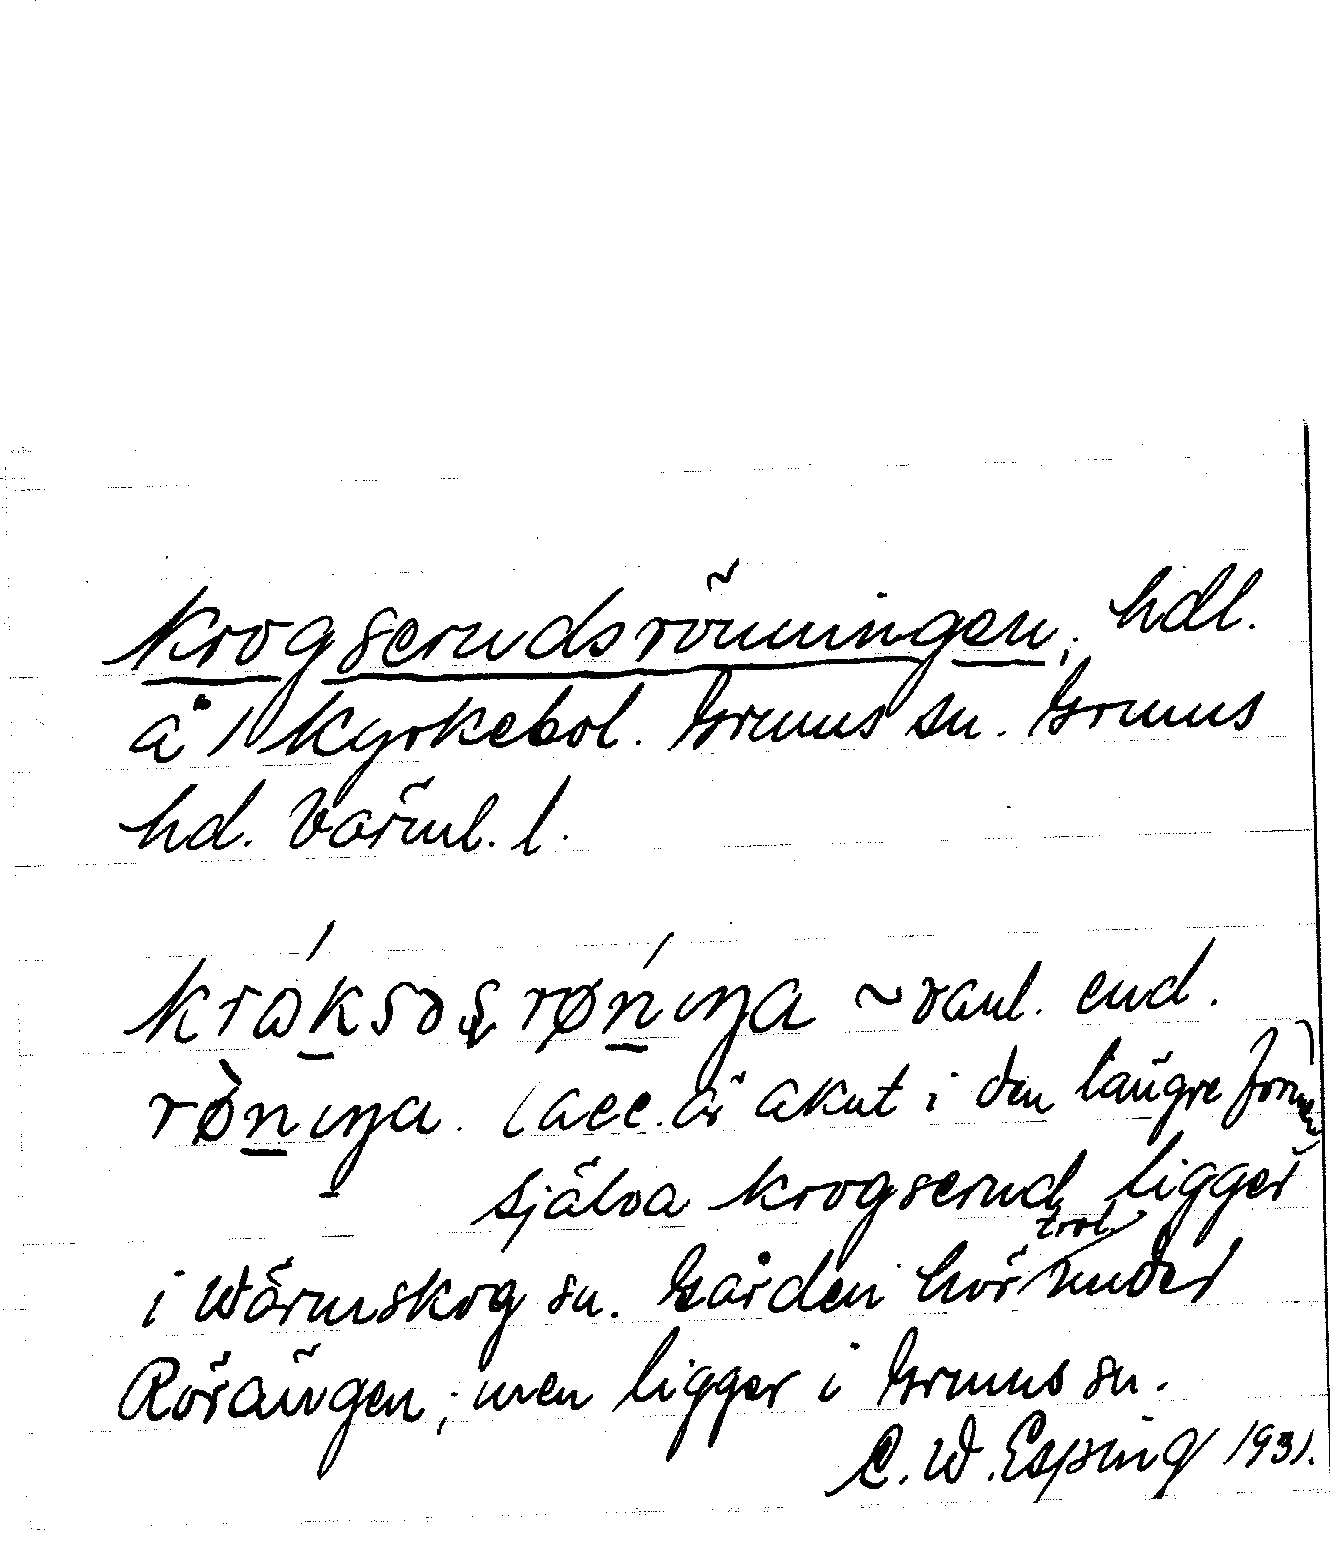 Krogserudsrönningen, hdl.
å 1 Kyrkebol. Grums sn. Grums
hd. Värml. l.
krɷ́ksəs̨rǿnıŋa ~ vanl. end.
rø̀nıŋa. (acc. är akut i den längre formen)
Själva Krogserud ligger
i Wärmskog sn. Gården hör trol. under
Rörängen, men ligger i Grums sn.
C. W. Esping 1931.